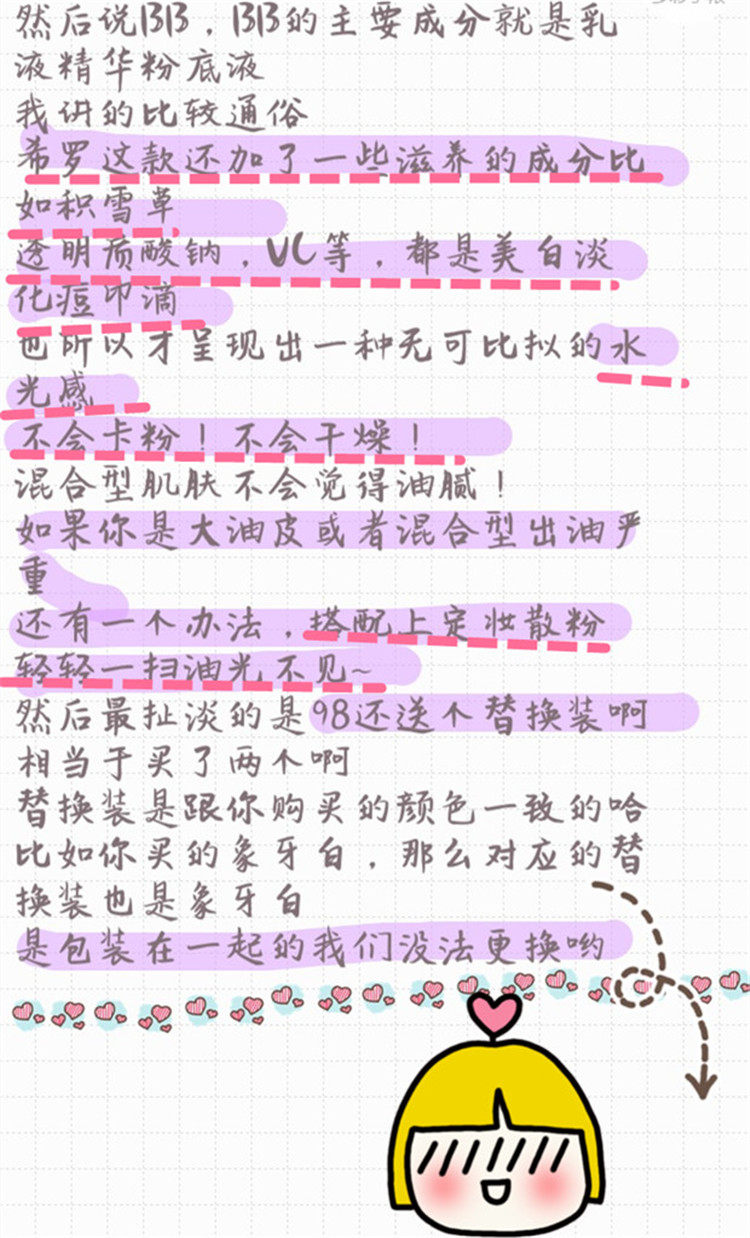 然后说BB，BB的主要成分就是乳
液精华粉底液
我讲的比较通俗
希罗这款还加了一些滋养的成分比
如积雪草
透明质酸钠，VC等，都是美白淡
化痘印滴
也所以才呈现出一种无可比拟的水
光感
不会卡粉！不会干燥！
混合型肌肤不会觉得油腻！
如果你是大油皮或者混合型出油严
重
还有一个办法，搭配上定妆散粉
轻轻一扫油光不见~
然后最扯淡的是98还送个替换装啊
相当于买了两个啊
替换装是跟你购买的颜色一致的哈
比如你买的象牙白，那么对应的替
换装也是象牙白
是包装在一起的我们没法更换哟